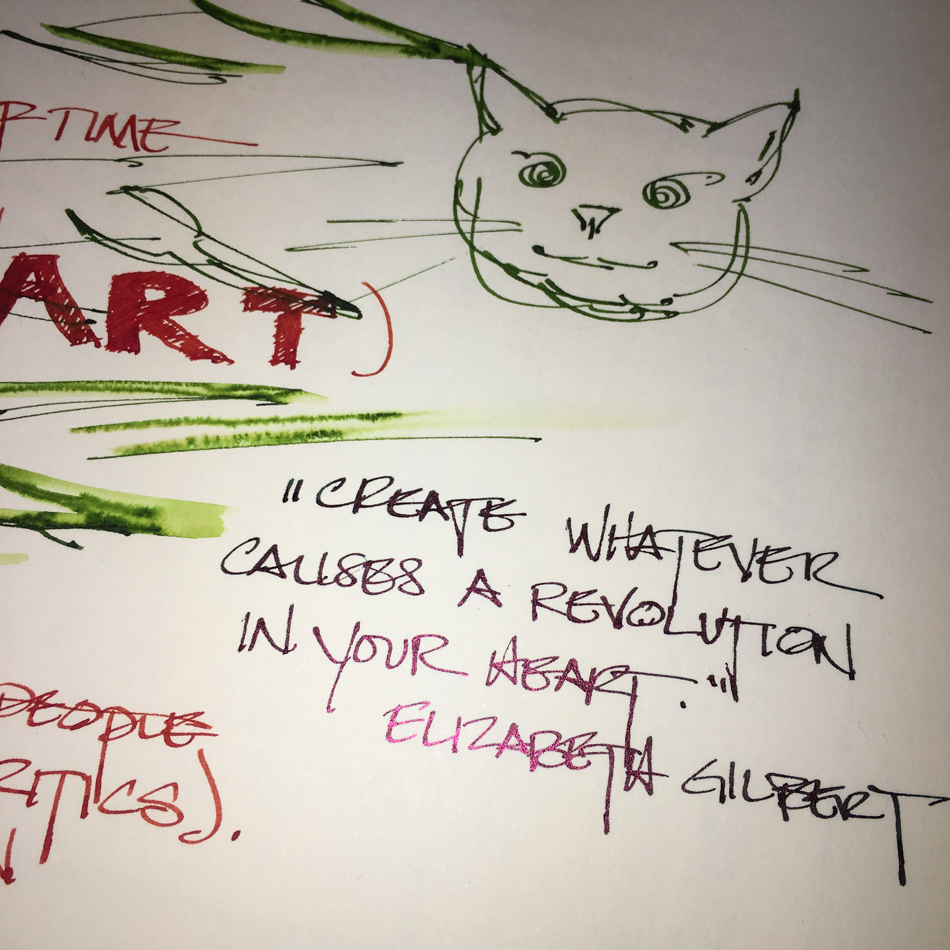 TIME
ART)
"CREATE WHATEVER
CAUSES A REVOLUTION
IN YOUR HEART."
ELIZABETH GILBERT
PEOPLE
RITICS).